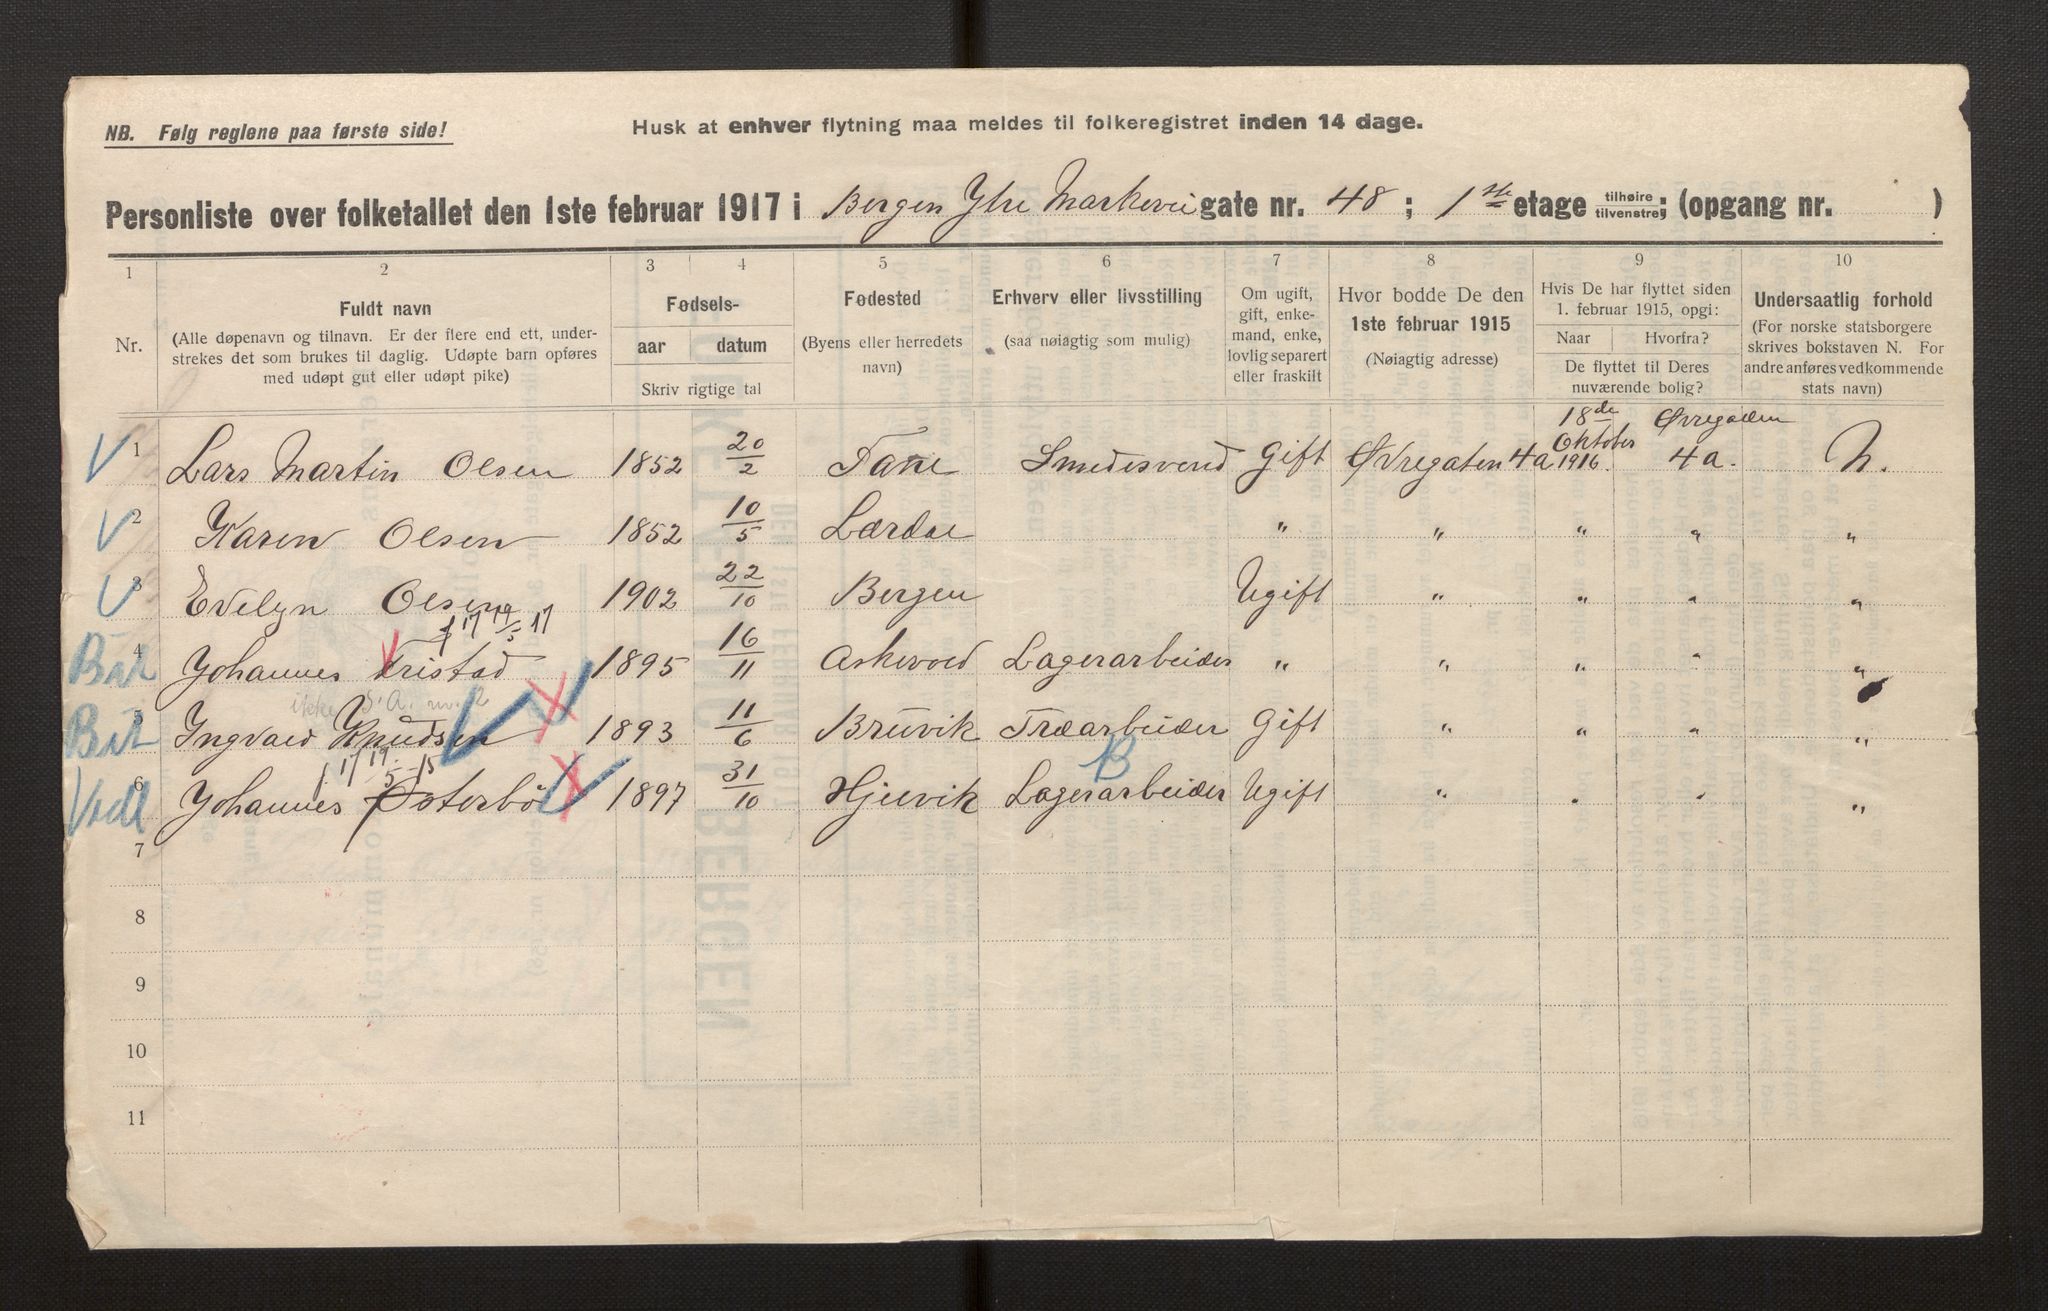 NB. Følg reglene paa første side!
Husk at enhver flytning maa meldes til folkeregistret inden 14 dage.
Personliste over folketallet den 1ste februar 1917 i Bergen Ytre Markevei gate nr. 48 ; 1ste etage tilhøire/tilvenstre; (opgang nr. )
1 2 3 4 5 6 7 8 9 10
Nr.
Fuldt navn
(Alle døpenavn og tilnavn. Er der flere end ett, under-
strekes det som brukes til daglig. Udøpte barn opføres
med udøpt gut eller udøpt pike)
Fødsels-
aar datum
Skriv rigtige tal
Fødested
(Byens eller herredets
navn)
Erhverv eller livsstilling
(saa nøiagtig som mulig)
Om ugift,
gift, enke-
mand, enke,
lovlig separert
eller fraskilt
Hvor bodde De den
1ste februar 1915
(Nøiagtig adresse)
Hvis De har flyttet siden
1. februar 1915, opgi:
Naar Hvorfra?
De flyttet til Deres
nuværende bolig?
Undersaatlig forhold
(For norske statsborgere
skrives bokstaven N. For
andre anføres vedkommende
stats navn)
18de Øvregaden
V 1 Lars Martin Olsen 1852 20/2 Fane Smedesvend Gift Øvregaten 4a Oktober 1916. 4a. N.
V 2 Karen Olsen 1852 10/5 Lærdal " " " " "
V 3 Evelyn Olsen 1902 22/10 Bergen Ugift " " " "
4 Johannes Tristad 1895 16/11 Askevold Lagerarbeider " " " " "
ikke S.A. nr. 2
5 Ingvald Knudsen 1893 11/6 Bruvik Træarbeider Gift " " " "
B
6 Johannes Østerbö 1897 31/10 Hjelvik Lagerarbeider Ugift " " " "
7
8
9
10
11